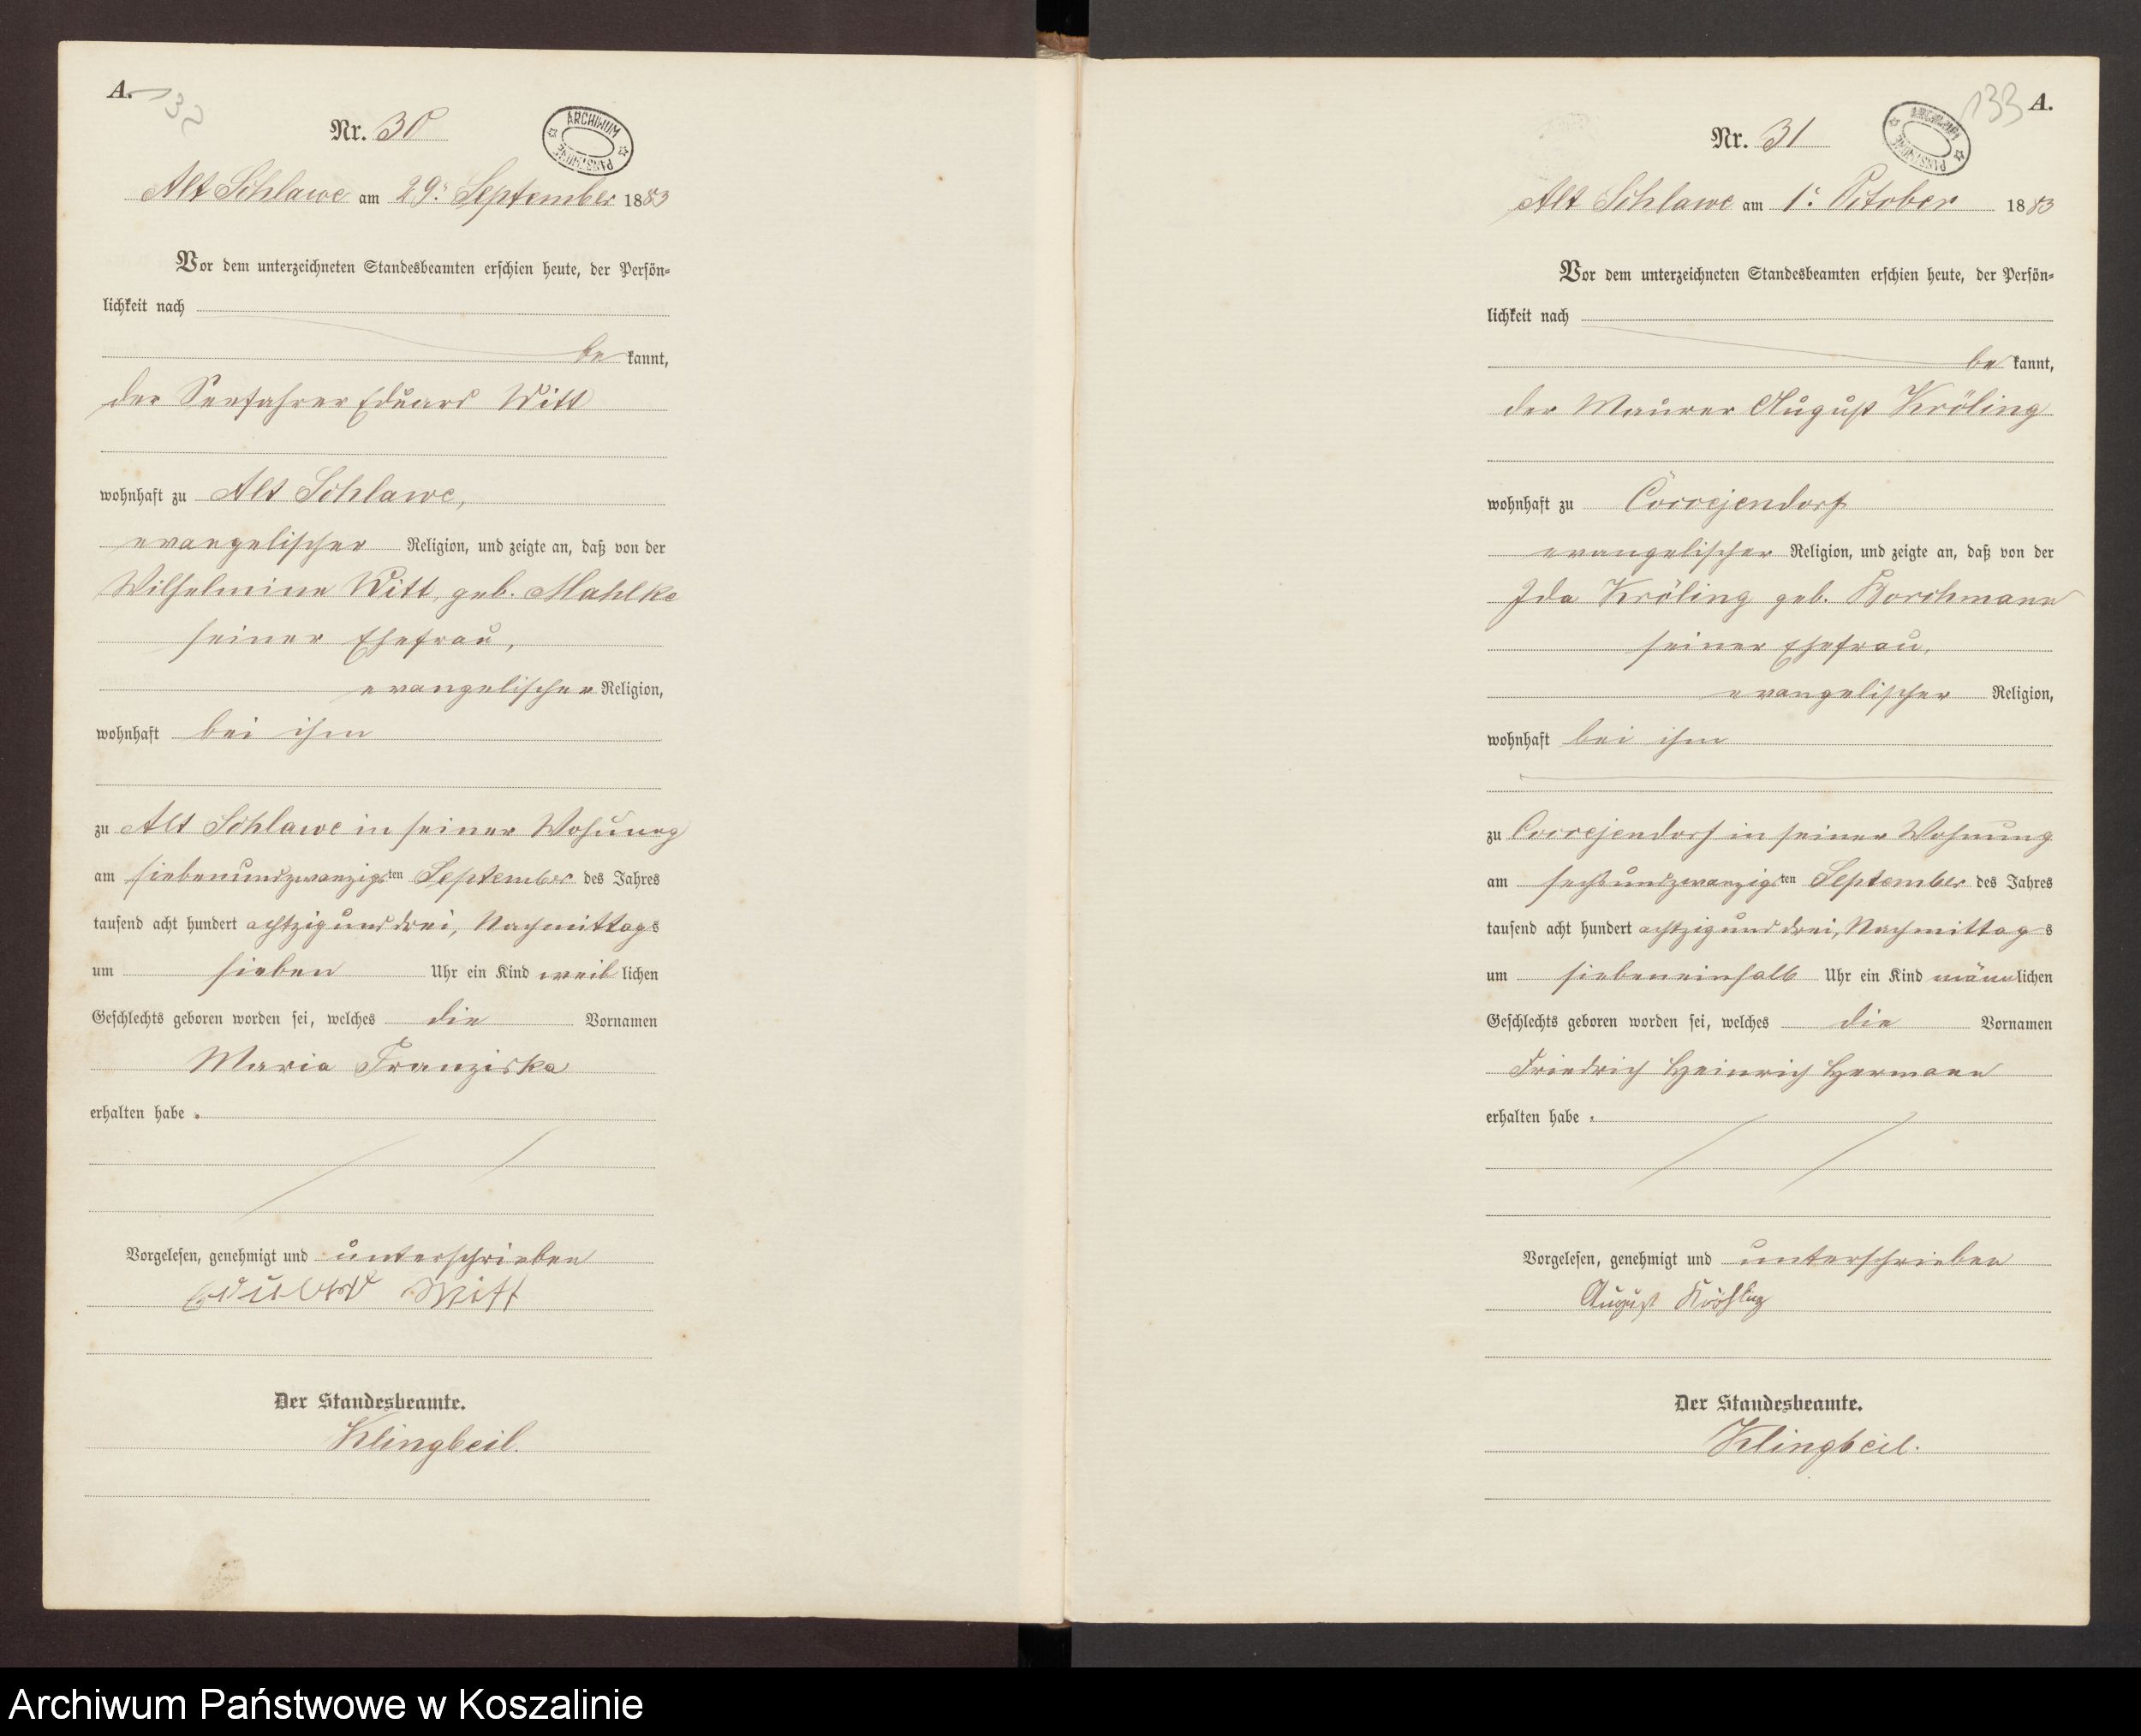 A.
32
Nr. 30
ARCHIWUM PAŃSTWOWE
Alt Schlawe am 29. September 1883
Vor dem unterzeichneten Standesbeamten erschien heute, der Persön-
lichkeit nach
be kannt,
der Seefahrer Eduard Witt
wohnhaft zu Alt Schlawe,
evangelischer Religion, und zeigte an, daß von der
Wilhelmine Witt, geb. Mahlke
seiner Ehefrau,
evangelischer Religion,
wohnhaft bei ihm
zu Alt Schlawe in seiner Wohnung
am siebenundzwanzigsten September des Jahres
tausend acht hundert achtzig und drei, Nachmittags
um sieben Uhr ein Kind weiblichen
Geschlechts geboren worden sei, welches die Vornamen
Maria Franziska
erhalten habe.
Vorgelesen, genehmigt und unterschrieben
Eduard Witt
Der Standesbeamte.
Klingbeil.
133
A.
Nr. 31
ARCHIWUM PAŃSTWOWE
Alt Schlawe am 1. October 1883
Vor dem unterzeichneten Standesbeamten erschien heute, der Persön-
lichkeit nach
be kannt,
der Maurer August Kröling
wohnhaft zu Coccejendorf
evangelischer Religion, und zeigte an, daß von der
Ida Kröling geb. Borchmann
seiner Ehefrau,
evangelischer Religion,
wohnhaft bei ihm
zu Coccejendorf in seiner Wohnung
am sechsundzwanzigsten September des Jahres
tausend acht hundert achtzig und drei, Nachmittags
um siebeneinhalb Uhr ein Kind männlichen
Geschlechts geboren worden sei, welches die Vornamen
Friedrich Heinrich Hermann
erhalten habe.
Vorgelesen, genehmigt und unterschrieben
August Kröhling
Der Standesbeamte.
Klingbeil.
Archiwum Państwowe w Koszalinie